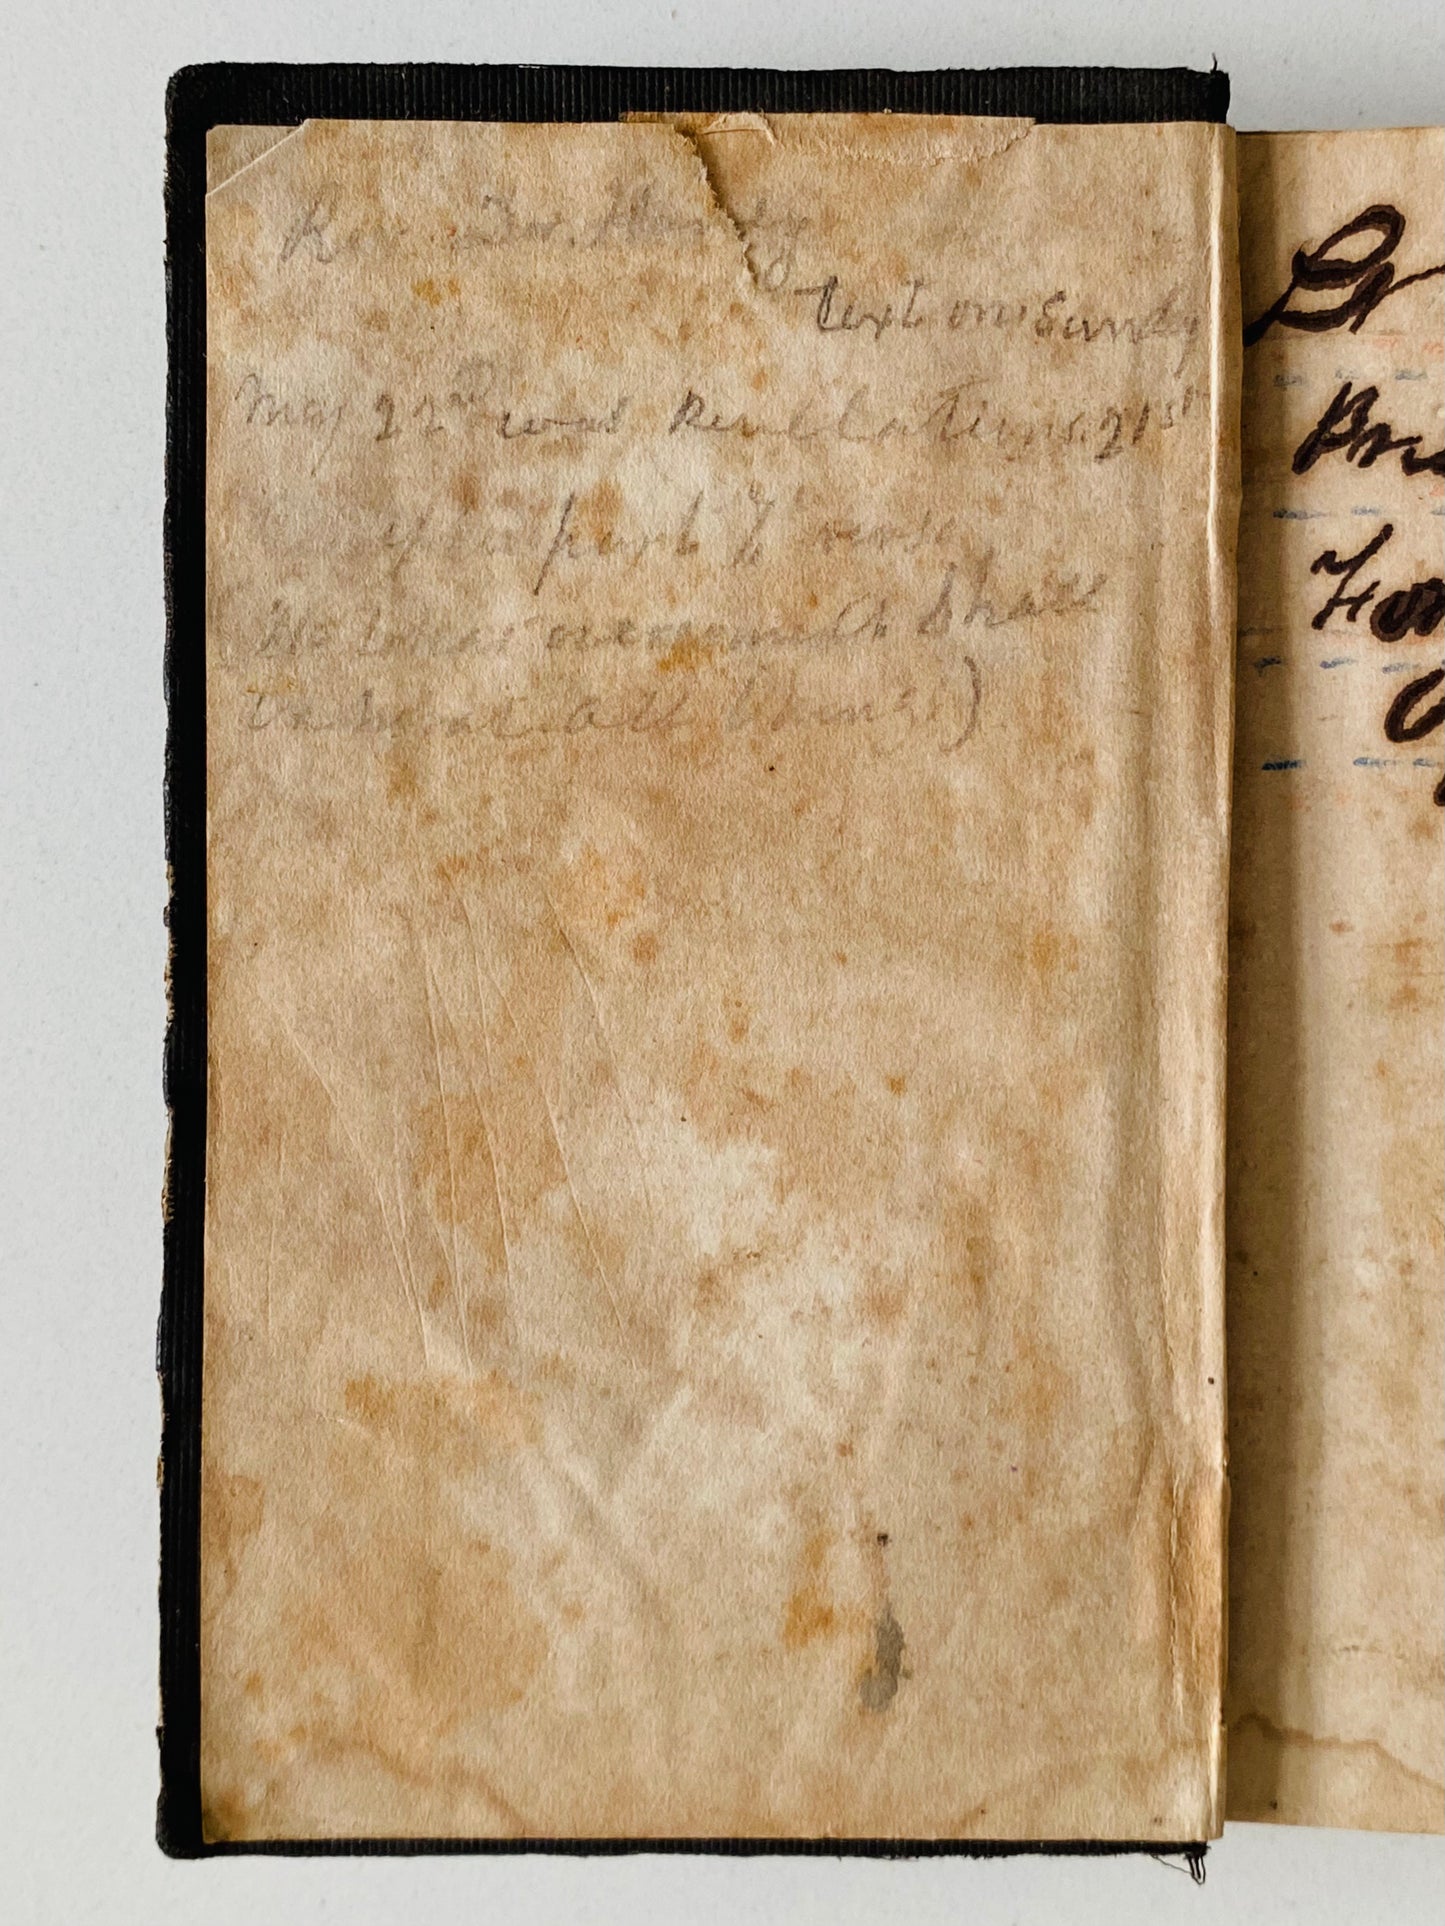 Rev. Dr.
text on Sundy
May 22nd was Revllations. 21st
part 7 verse
He that overcometh shall
all things)
Dr
Bri
For